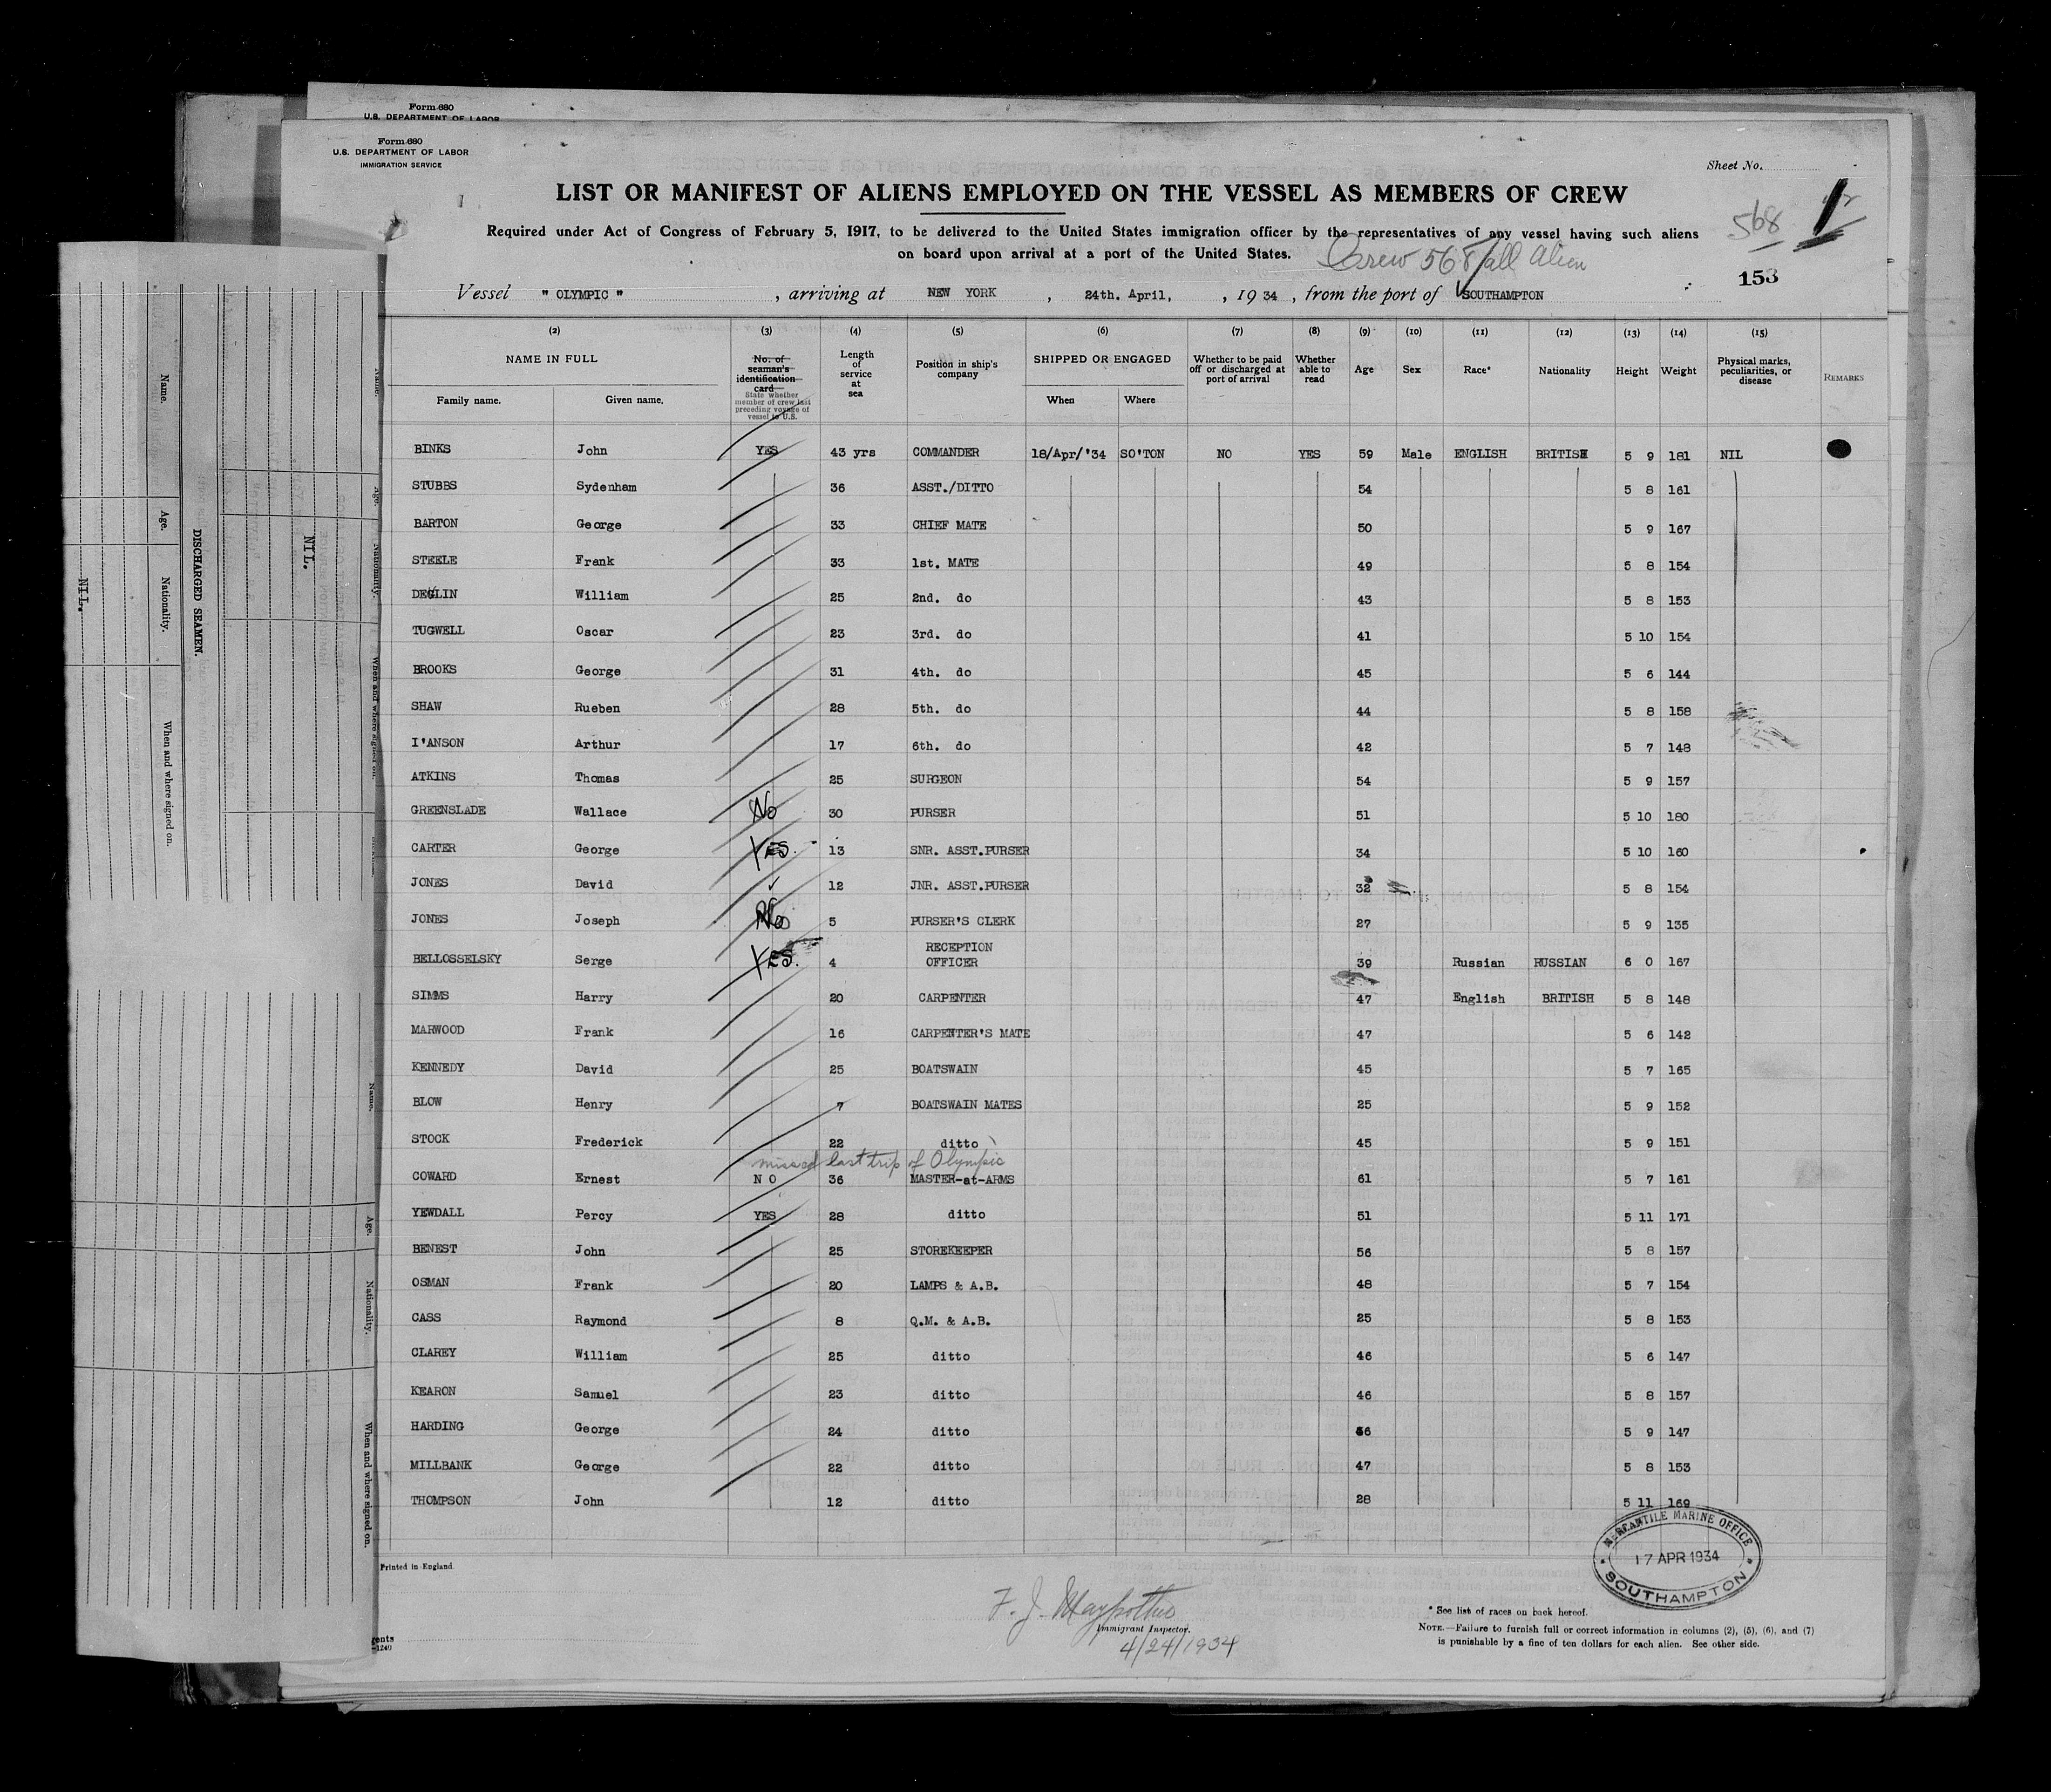 Form 680
U.S. DEPARTMENT OF LABOR
Form 680
U.S. DEPARTMENT OF LABOR
IMMIGRATION SERVICE
Sheet No.
LIST OR MANIFEST OF ALIENS EMPLOYED ON THE VESSEL AS MEMBERS OF CREW
568
Required under Act of Congress of February 5, 1917, to be delivered to the United States immigration officer by the representatives of any vessel having such aliens
on board upon arrival at a port of the United States.
Crew 568 all Alien
153
Vessel " OLYMPIC " , arriving at NEW YORK , 24th. April, , 1934 , from the port of SOUTHAMPTON
(2) (3) (4) (5) (6) (7) (8) (9) (10) (11) (12) (13) (14) (15)
NAME IN FULL
Family name. Given name.
No. of seaman's identification card
State whether member of crew last preceding voyage of vessel to U.S.
Length of service at sea
Position in ship's company
SHIPPED OR ENGAGED
When Where
Whether to be paid off or discharged at port of arrival
Whether able to read
Age
Sex
Race*
Nationality
Height
Weight
Physical marks, peculiarities, or disease
REMARKS
BINKS John YES 43 yrs COMMANDER 18/Apr/'34 SO'TON NO YES 59 Male ENGLISH BRITISH 5 9 181 NIL
STUBBS Sydenham 36 ASST./DITTO 54 5 8 161
BARTON George 33 CHIEF MATE 50 5 9 167
STEELE Frank 33 1st. MATE 49 5 8 154
DEGLIN William 25 2nd. do 43 5 8 153
TUGWELL Oscar 23 3rd. do 41 5 10 154
BROOKS George 31 4th. do 45 5 6 144
SHAW Rueben 28 5th. do 44 5 8 158
I'ANSON Arthur 17 6th. do 42 5 7 148
ATKINS Thomas 25 SURGEON 54 5 9 157
GREENSLADE Wallace No 30 PURSER 51 5 10 180
CARTER George YES. 13 SNR. ASST.PURSER 34 5 10 160
JONES David 12 JNR. ASST.PURSER 32 5 8 154
JONES Joseph No 5 PURSER'S CLERK 27 5 9 135
BELLOSSELSKY Serge YES. 4 RECEPTION OFFICER 39 Russian RUSSIAN 6 0 167
SIMMS Harry 20 CARPENTER 47 English BRITISH 5 8 148
MARWOOD Frank 16 CARPENTER'S MATE 47 5 6 142
KENNEDY David 25 BOATSWAIN 45 5 7 165
BLOW Henry 7 BOATSWAIN MATES 25 5 9 152
STOCK Frederick 22 ditto 45 5 9 151
missed last trip of Olympic
COWARD Ernest NO 36 MASTER-at-ARMS 61 5 7 161
YEWDALL Percy YES 28 ditto 51 5 11 171
BENEST John 25 STOREKEEPER 56 5 8 157
OSMAN Frank 20 LAMPS & A.B. 48 5 7 154
CASS Raymond 8 Q.M. & A.B. 25 5 8 153
CLAREY William 25 ditto 46 5 6 147
KEARON Samuel 23 ditto 46 5 8 157
HARDING George 24 ditto 5 9 147
MILLBANK George 22 ditto 47 5 8 153
THOMPSON John 12 ditto 28 5 11 169
MERCANTILE MARINE OFFICE
17 APR 1934
SOUTHAMPTON
Printed in England.
F. J.
Immigrant Inspector.
4/24/1934
* See list of races on back hereof.
NOTE.—Failure to furnish full or correct information in columns (2), (5), (6), and (7)
is punishable by a fine of ten dollars for each alien. See other side.
DISCHARGED SEAMEN.
Name. Age. Nationality. When and where signed on.
NIL.
NIL.
Name. Age. Nationality. When and where signed on.